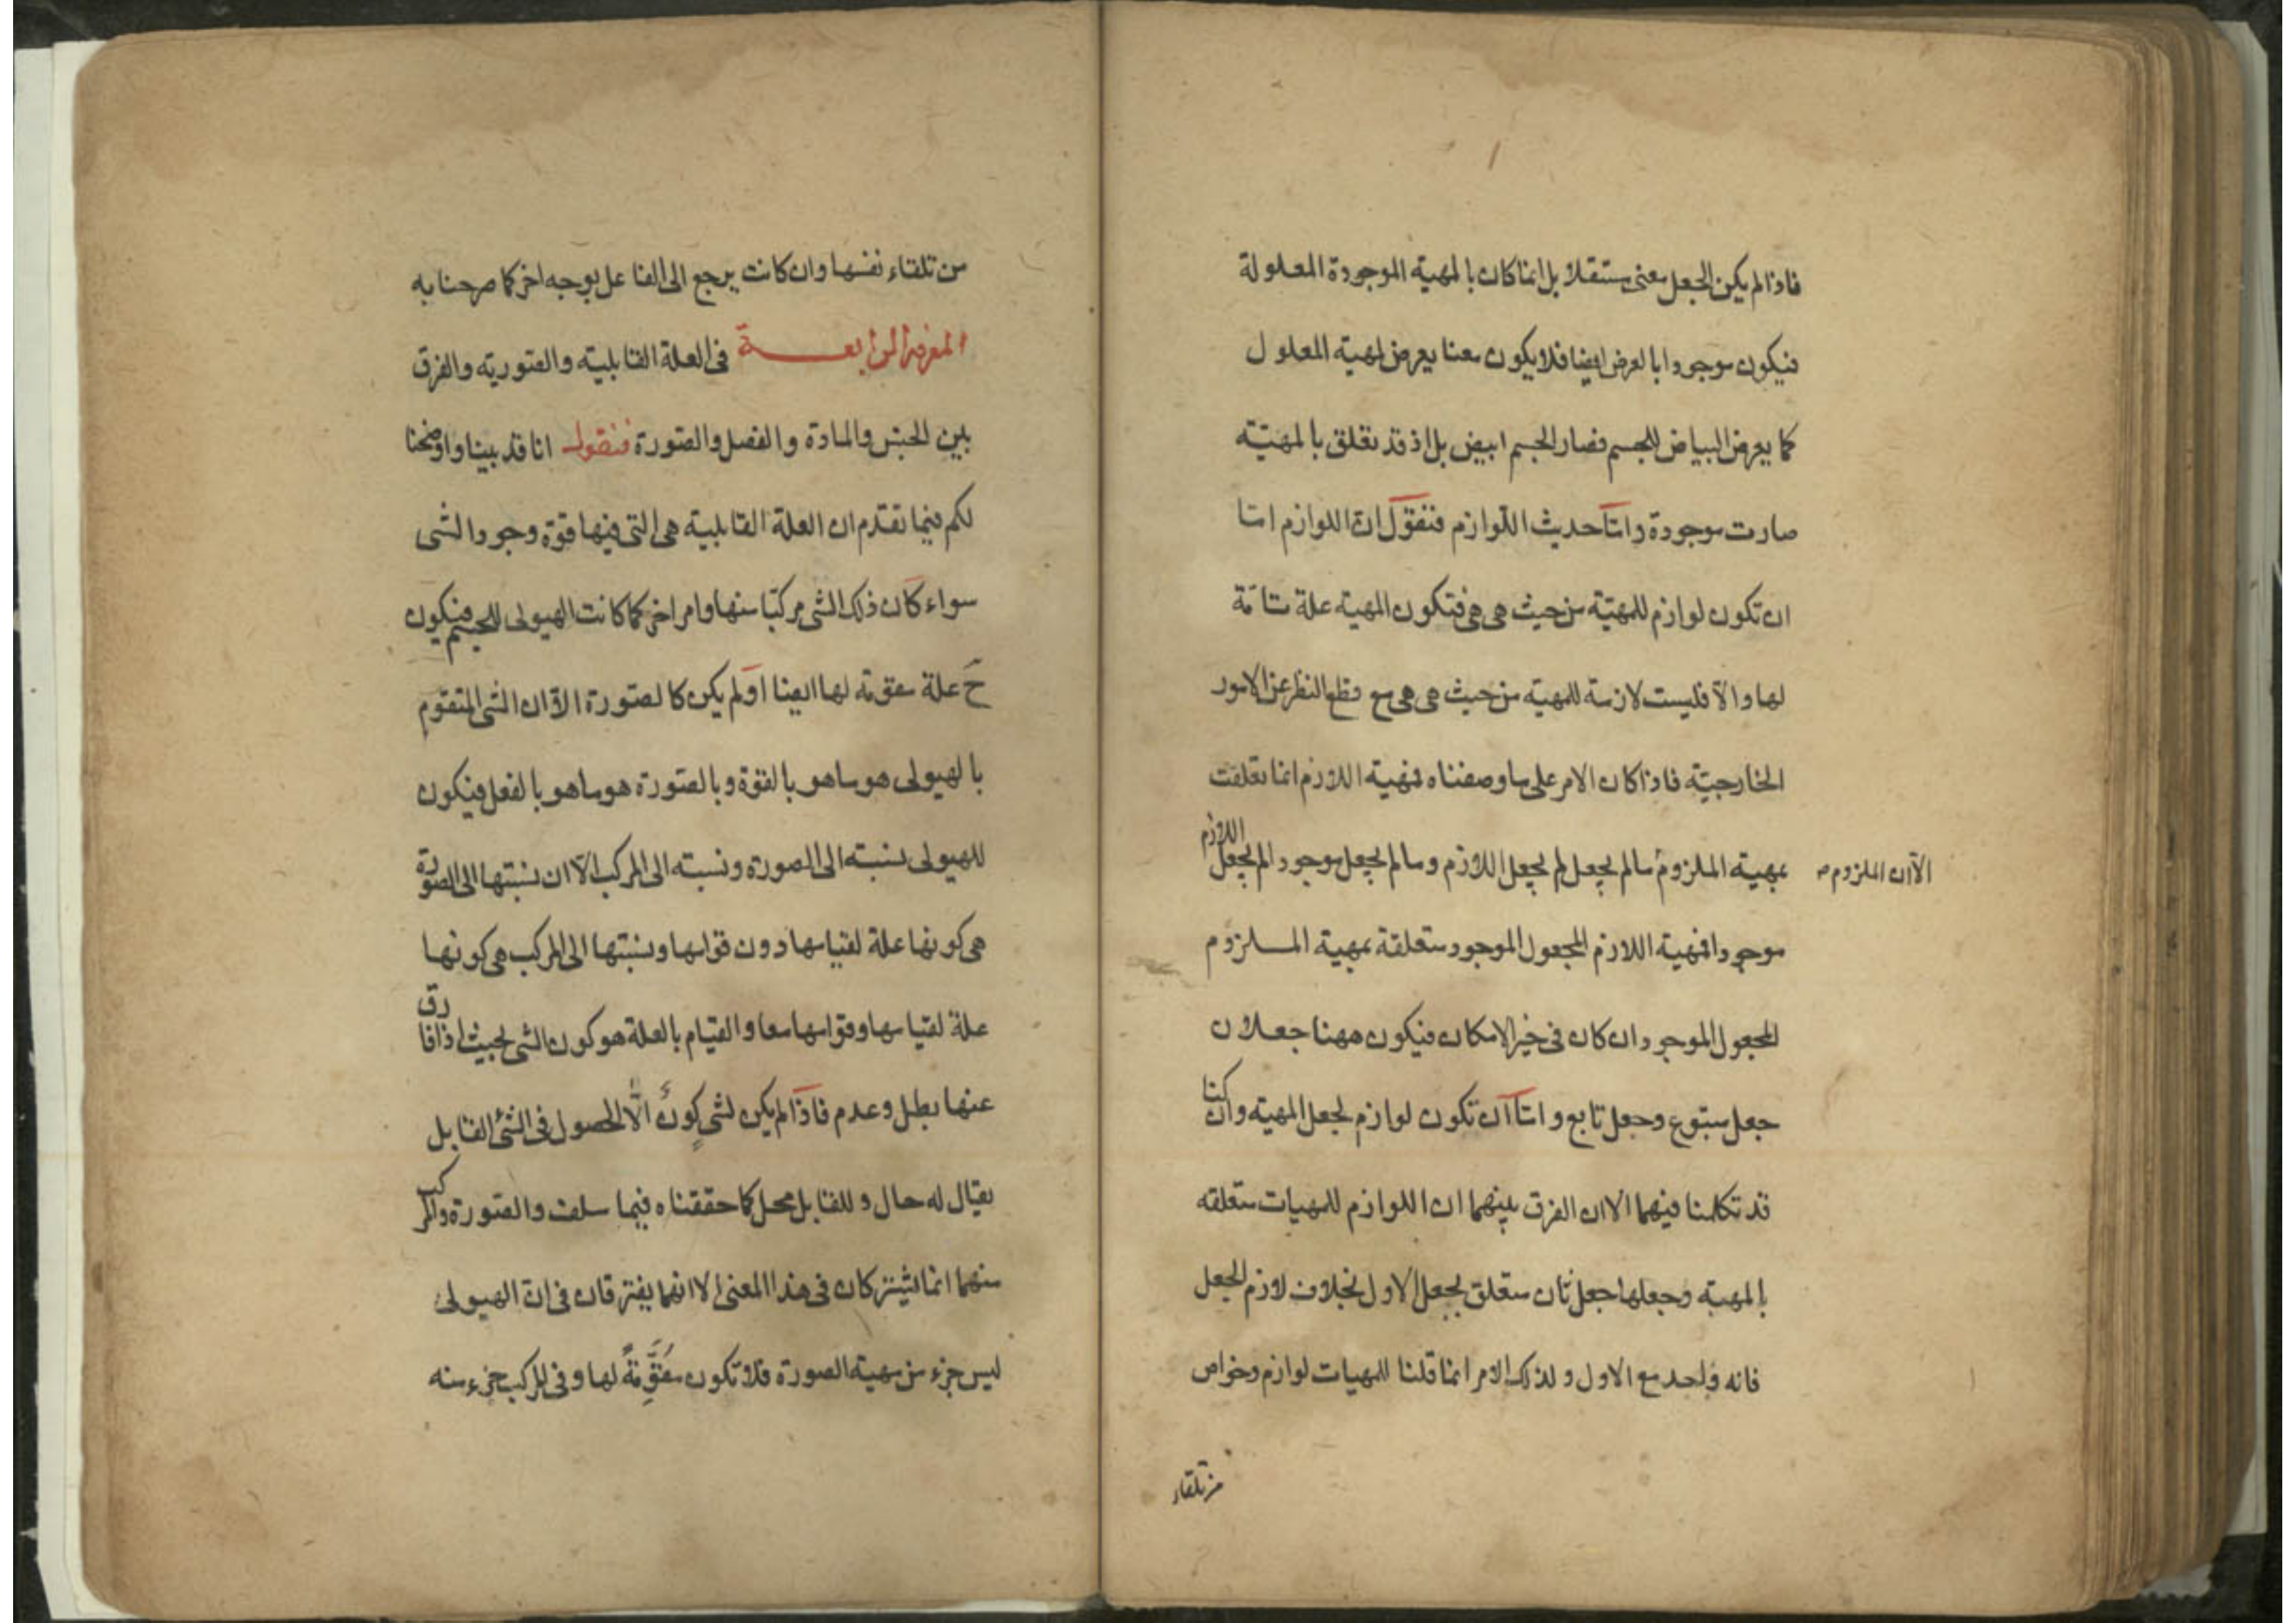 فاذا لم يكن الجعل معنى مستقلا بل انما كان بالمهية الموجودة المعلولة
فيكون موجودا بالعرض ايضا فلا يكون معنا يعرض لمهية المعلول
كما يعرض البياض للجسم فصار الجسم ابيض بل اذ قد تعلق بالمهيّة
صارت موجودة وامّا حديث اللوازم فنقول انّ اللوازم امّا
ان تكون لوازم للمهيّة من حيث هى هى فتكون المهية علة تامّة
لها والّا فليست لازمة للمهية من حيث هى هى مع قطع النظر عن الامور
الخارجيّة فاذا كان الامر على ما وصفناه فمهية اللازم انما تعلقت
بمهية الملزوم ما لم يجعل لم يجعل اللازم وما لم يجعل موجودا لم يجعل اللازم
الّا ان الملزوم
موجودا فمهية اللازم المجعول الموجود متعلقة بمهية الملزوم
المجعول الموجود ان كان فى حيز الامكان فيكون ههنا جعلان
جعل متبوع وجعل تابع وامّا ان تكون لوازم لجعل المهية وان كنا
قد تكلمنا فيهما الا ان الفرق بينهما ان اللوازم للمهيات متعلقه
بالمهية وجعلها جعل ثان متعلق بجعل الاول بخلاف لازم الجعل
فانه واحد مع الاول ولذلك الامر انما قلنا للمهيات لوازم وخواص
من تلقاء
من تلقاء نفسها وان كانت يرجع الى الفاعل بوجه اخر كما صرحنا به
المعرفة الرابعة فى العلة القابلية والصّورية والفرق
بين الجنس والمادة والفصل والصّورة فنقول انا قد بينا واوضحنا
لكم فيما تقدّم ان العلة القابلية هى التى فيها قوّة وجود الشى
سواء كان ذلك الشى مركبّا منها وامر اخر كما كانت الهيولى للجسم فيكون
ح علة مقومة لها ايضا او لم يكن كالصّورة الّا ان الشى المتقوم
بالهيولى هو ما هو بالقوّة وبالصّورة هو ما هو بالفعل فيكون
للهيولى نسبته الى الصورة ونسبته الى المركب الّا ان نسبتها الى الصورة
هى كونها علة لقيامها دون قوامها ونسبتها الى المركب هى كونها
علة لقيامها وقوامها معا والقيام بالعلة هو كون الشى بحيث اذا فارق
عنها بطل وعدم فاذا لم يكن لشىٍ كونٌ الّا الحصول فى الشئ القابل
يقال له حال وللقابل محل كما حققناه فيما سلف والصّورة والمركب
منهما انما يشتركان فى هذا المعنى الا انهما يفترقان فى انّ الهيولى
ليس جزء من مهية الصورة فلا تكون مُقَوِّمةً لها وفى المركب جزء منه